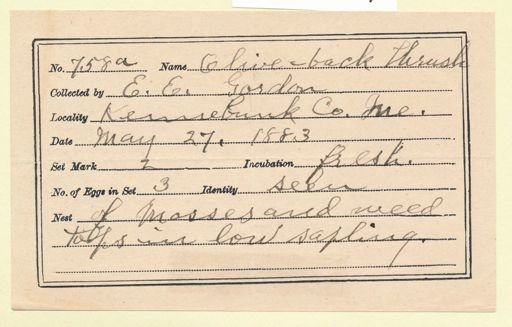 No. 758a Name Olive-back Thrush
Collected by E. E. Gordon
Locality Kennebunk Co. Me.
Date May 27. 1883
Set Mark 2 Incubation fresh.
No. of Eggs in Set 3 Identity seen
Nest of Mosses and weed
tops in low sapling.